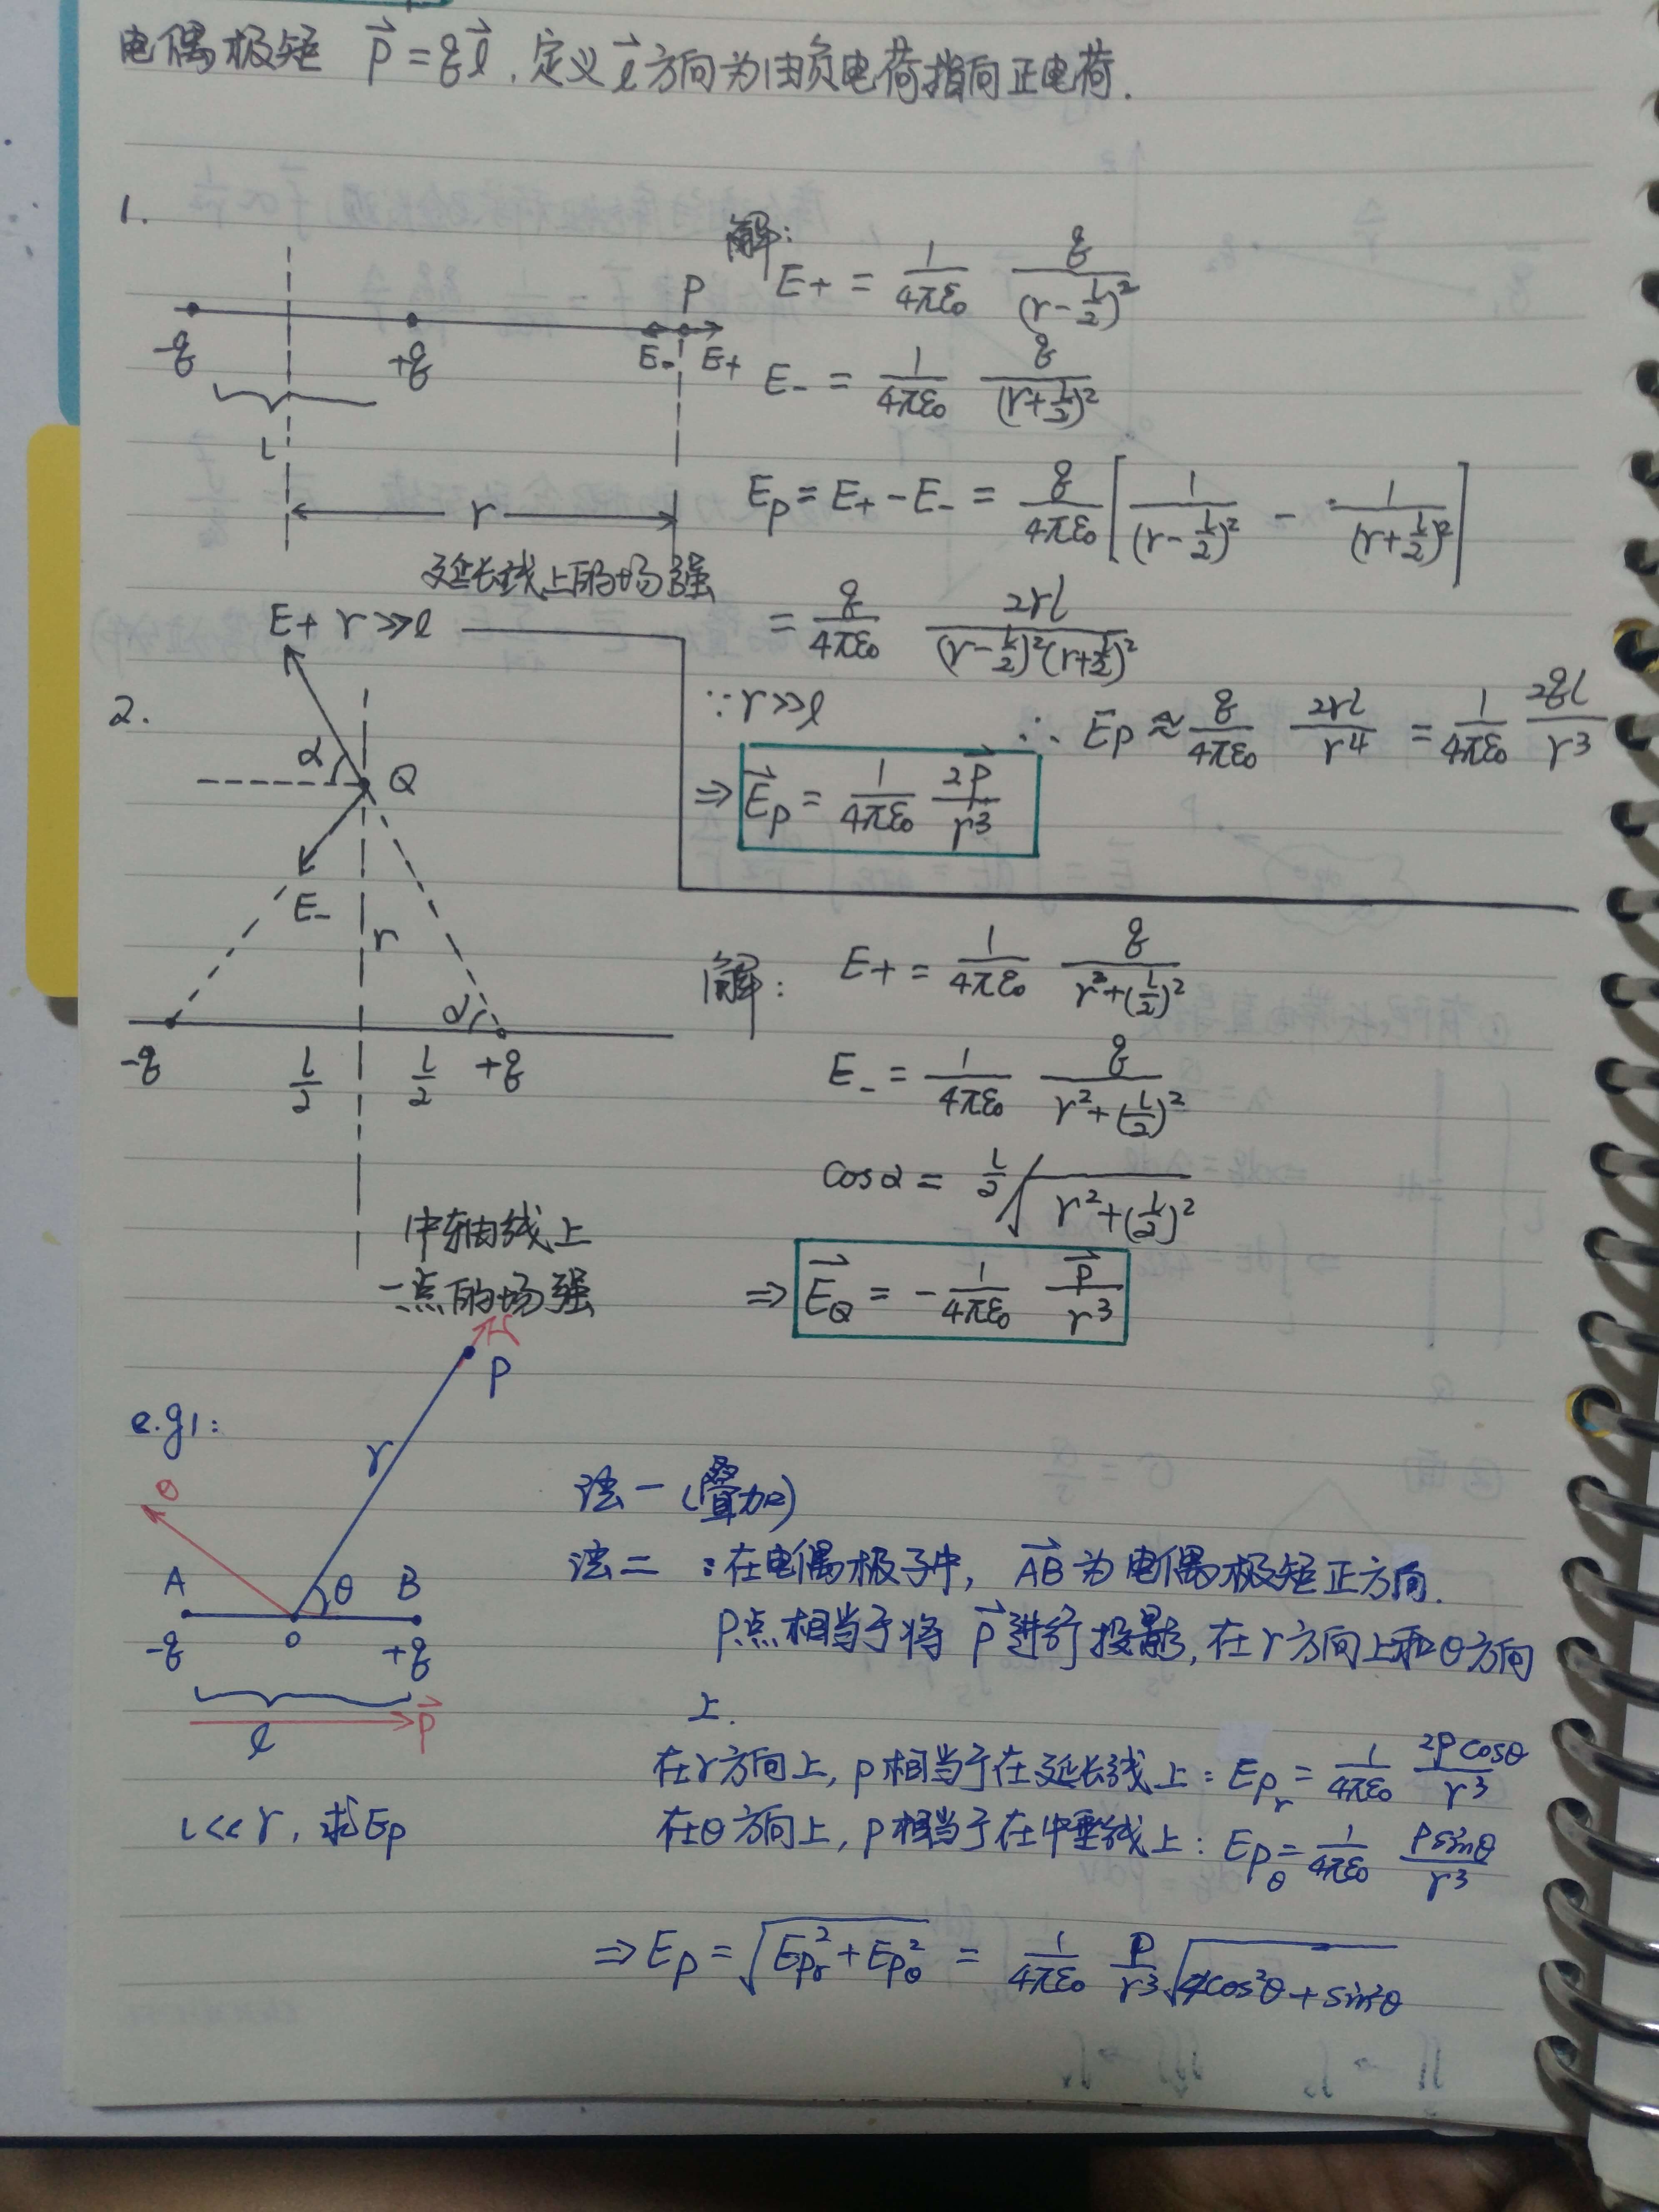 电偶极矩 p⃗ = ql⃗, 定义 l⃗ 方向为由负电荷指向正电荷.
1.
-q +q P E₋ E₊
l
r
延长线上的场强
r≫l
解:
E₊ = 1/(4πε₀) q/(r-l/2)²
E₋ = 1/(4πε₀) q/(r+l/2)²
E_P = E₊ - E₋ = q/(4πε₀) [1/(r-l/2)² - 1/(r+l/2)²]
= q/(4πε₀) 2rl/((r-l/2)²(r+l/2)²)
∵ r≫l ∴ E_P ≈ q/(4πε₀) 2rl/r⁴ = 1/(4πε₀) 2ql/r³
⇒ E⃗_P = 1/(4πε₀) 2p⃗/r³
2.
E₊
α Q
E₋
r
α
-q l/2 l/2 +q
中轴线上
一点的场强
解: E₊ = 1/(4πε₀) q/(r²+(l/2)²)
E₋ = 1/(4πε₀) q/(r²+(l/2)²)
cosα = l/2 / √(r²+(l/2)²)
⇒ E⃗_Q = - 1/(4πε₀) p⃗/r³
e.g1:
r̂ P
r
θ
A θ B
-q o +q
l p⃗
l<<r, 求E_P
法一 (叠加)
法二 : 在电偶极子中, AB⃗ 为电偶极矩正方向.
P点相当于将 p⃗ 进行投影, 在r方向上和θ方向
上.
在r方向上, P相当于在延长线上: E_Pr = 1/(4πε₀) 2Pcosθ/r³
在θ方向上, P相当于在中垂线上: E_Pθ = 1/(4πε₀) Psinθ/r³
⇒ E_P = √(E_Pr² + E_Pθ²) = 1/(4πε₀) P/r³ √(4cos²θ + sin²θ)